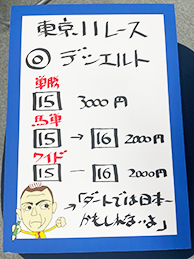 東京11レース
◎デシエルト
単勝
15 3000円
馬単
15 → 16 2000円
ワイド
15 － 16 2000円
→「ダートでは日本一
かもしれない…よ」